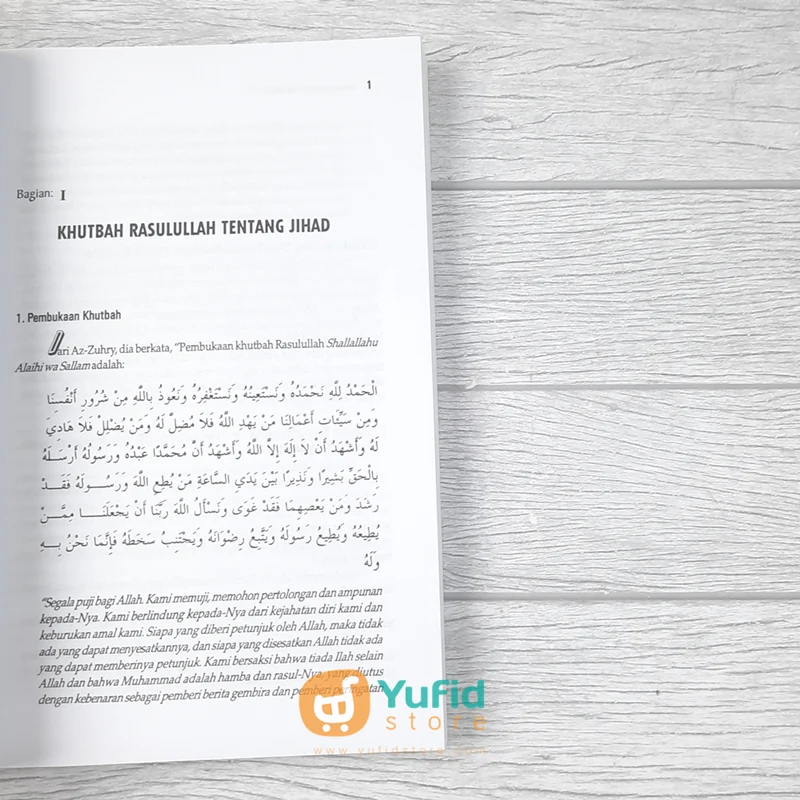 1
Bagian: I
KHUTBAH RASULULLAH TENTANG JIHAD
1. Pembukaan Khutbah
Dari Az-Zuhry, dia berkata, “Pembukaan khutbah Rasulullah Shallallahu
Alaihi wa Sallam adalah:
الْحَمْدُ لِلَّهِ نَحْمَدُهُ وَنَسْتَعِينُهُ وَنَسْتَغْفِرُهُ وَنَعُوذُ بِاللَّهِ مِنْ شُرُورِ أَنْفُسِنَا
وَمِنْ سَيِّئَاتِ أَعْمَالِنَا مَنْ يَهْدِ اللَّهُ فَلَا مُضِلَّ لَهُ وَمَنْ يُضْلِلْ فَلَا هَادِيَ
لَهُ وَأَشْهَدُ أَنْ لَا إِلَهَ إِلَّا اللَّهُ وَأَشْهَدُ أَنَّ مُحَمَّدًا عَبْدُهُ وَرَسُولُهُ أَرْسَلَهُ
بِالْحَقِّ بَشِيرًا وَنَذِيرًا بَيْنَ يَدَيِ السَّاعَةِ مَنْ يُطِعِ اللَّهَ وَرَسُولَهُ فَقَدْ
رَشَدَ وَمَنْ يَعْصِهِمَا فَقَدْ غَوَى وَنَسْأَلُ اللَّهَ رَبَّنَا أَنْ يَجْعَلَنَا مِمَّنْ
يُطِيعُهُ وَيُطِيعُ رَسُولَهُ وَيَتَّبِعُ رِضْوَانَهُ وَيَجْتَنِبُ سَخَطَهُ فَإِنَّمَا نَحْنُ بِهِ
وَلَهُ
“Segala puji bagi Allah. Kami memuji, memohon pertolongan dan ampunan
kepada-Nya. Kami berlindung kepada-Nya dari kejahatan diri kami dan
keburukan amal kami. Siapa yang diberi petunjuk oleh Allah, maka tidak
ada yang dapat menyesatkannya, dan siapa yang disesatkan Allah tidak ada
yang dapat memberinya petunjuk. Kami bersaksi bahwa tiada Ilah selain
Allah dan bahwa Muhammad adalah hamba dan rasul-Nya, yang diutus
dengan kebenaran sebagai pemberi berita gembira dan pemberi peringatan
Yufid
store
www.yufidstore.com